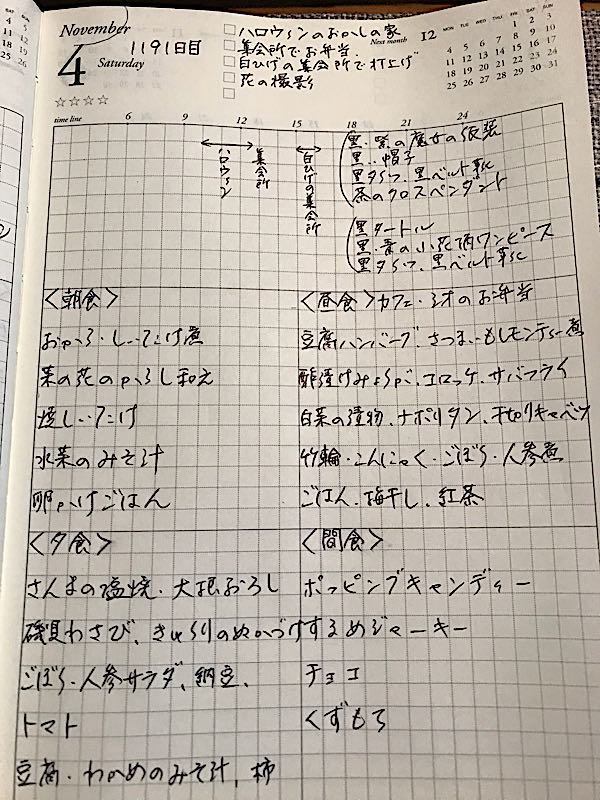 November
4
Saturday
1191日目
☆☆☆☆
ハロウィンのおかしの家
集会所でお弁当.
白ひげの集会所で打上げ
花の撮影
Next month 12 MON TUE WED THU FRI SAT SUN
1 2 3
4 5 6 7 8 9 10
11 12 13 14 15 16 17
18 19 20 21 22 23 24
25 26 27 28 29 30 31
time line 6 9 12 15 18 21 24
ハロウィン
集会所
白ひげの集会所
黒・紫の魔女の仮装
黒.帽子
黒タイツ.黒ベルト靴
茶のクロスペンダント
黒タートル
黒・青の小花柄ワンピース
黒タイツ.黒ベルト靴
<朝食>
おから・しいたけ煮
菜の花のからし和え
焼しいたけ
水菜のみそ汁
卵かけごはん
<昼食>カフェ・ミオのお弁当
豆腐ハンバーグ.さつまいもレモンティー煮
酢漬けみょうが.コロッケ.サバフライ
白菜の漬物.ナポリタン.千切りキャベツ
竹輪・こんにゃく・ごぼう・人参煮
ごはん.梅干し.紅茶
<夕食>
さんまの塩焼.大根おろし
磯貝わさび、きゅうりのぬかづけ
ごぼう・人参サラダ、納豆、
トマト
豆腐・わかめのみそ汁、柿
<間食>
ポッピングキャンディー
するめジャーキー
チョコ
くずもち